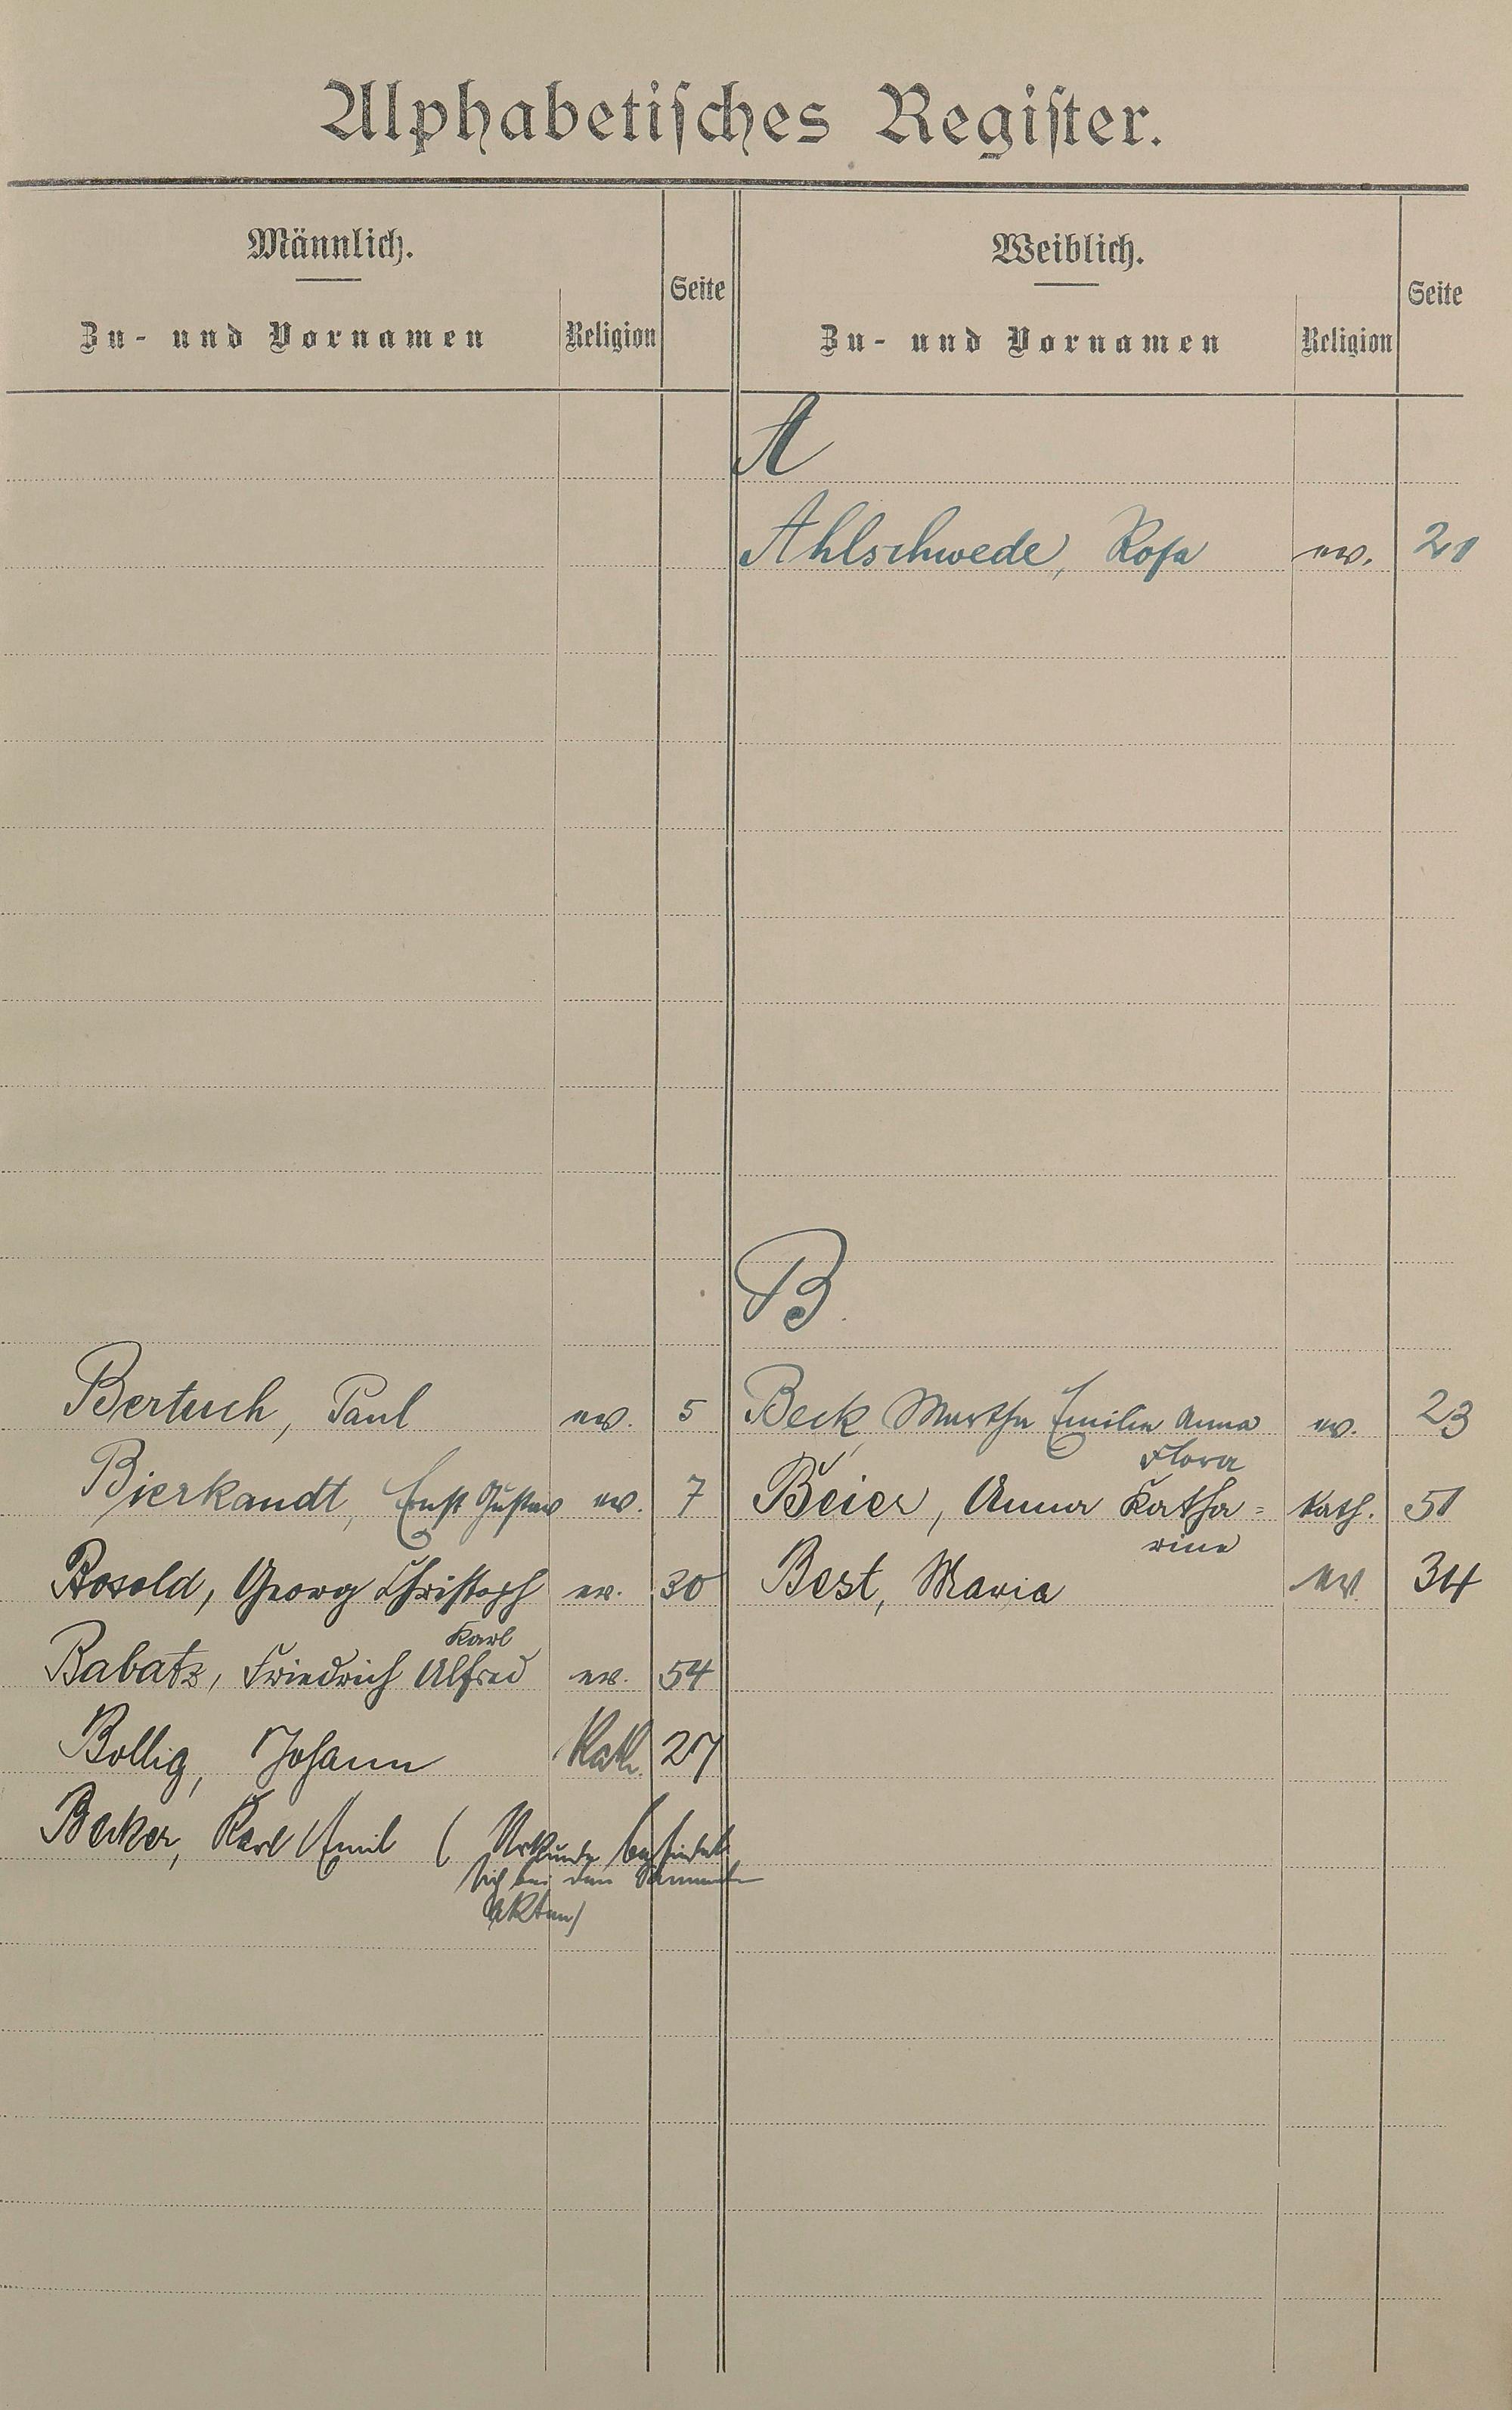 Alphabetisches Register.
Männlich.
Zu- und Vornamen
Religion
Seite
Weiblich.
Zu- und Vornamen
Religion
Seite
A
Ahlschwede, Rosa ev. 21
B
Bertuch, Paul ev. 5
Bierkandt, Ernst Gustav ev. 7
Bosold, Georg Christoph ev. 30
Karl
Babatz, Friedrich Alfred ev. 54
Bollig, Johann Kath. 27
Becker, Karl Emil (Urkunde befindet
sich bei den Sammel
Akten)
Beck, Martha Emilie Anna ev. 23
Flora
Beier, Anna Katha= kath. 51
rine
Best, Maria ev 34